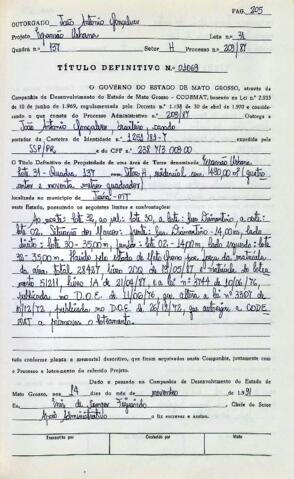 PAG. 205
OUTORGADO João Antonio Gonçalves
Projeto Expansão Urbana Lote n.° 31
Quadra n.° 137 Setor H Processo n.° 209/87
TÍTULO DEFINITIVO N.°
O GOVERNO DO ESTADO DE MATO GROSSO, através da
Companhia de Desenvolvimento do Estado de Mato Grosso - CODEMAT, com base na Lei n.° 2.933
de 10 de junho de 1.969, regulamentada pelo Decreto n.° 1.138 de 30 de abril de 1.970 e considerando
o que consta do Processo Administrativo n.° 209/87 Outorga a
João Antonio Gonçalves brasileiro, casado
portador da Carteira de Identidade n.° expedida pela
SSP/PR, e do CPF n.° 238 773 009 00
O Título Definitivo de Propriedade de uma área de Terra denominada Expansão Urbana
Lote 31 - Quadra 137 com Setor H, residencial com 490,00 m² (quatro
centos e noventa metros quadrados)
localizada no Município de - MT
neste Estado, possuindo os seguintes limites e confrontações:
Ao norte: lote 32, ao sul: lote 30, a leste: Rua Diamantino, a oeste:
lote 02. Situação dos Marcos: frente: Rua Diamantino - 14,00 m, lado
direito: lote 30 - 35,00 m, fundos: lote 02 - 14,00 m, lado esquerdo: lote
32 - 35,00 m. Havido pelo Estado de Mato Grosso por força da matricula
da área total, 28437 livro 2 de 19/05/87 e matricula do lotea
mento 51211 livro 1A de 21/09/87 e a lei nº 3744 de 10/06/76,
publicada no D.O.E. de 11/06/76, que altera a lei nº 3307 de
18/12/72, publicada no D.O.E de 26/12/72, que autoriza a CODE
MAT a promover o loteamento.
tudo conforme planta e memorial descritivo, que ficam arquivados nesta Companhia, juntamente com
o Processo e loteamento do referido Projeto.
Dado e passado na Companhia de Desenvolvimento do Estado de
Mato Grosso, aos 14 dias do mês de novembro de 1.991
Eu, Chefe do Setor
Apoio Administrativo o fiz escrever e assino.
Transcrito por Conferido por Visto